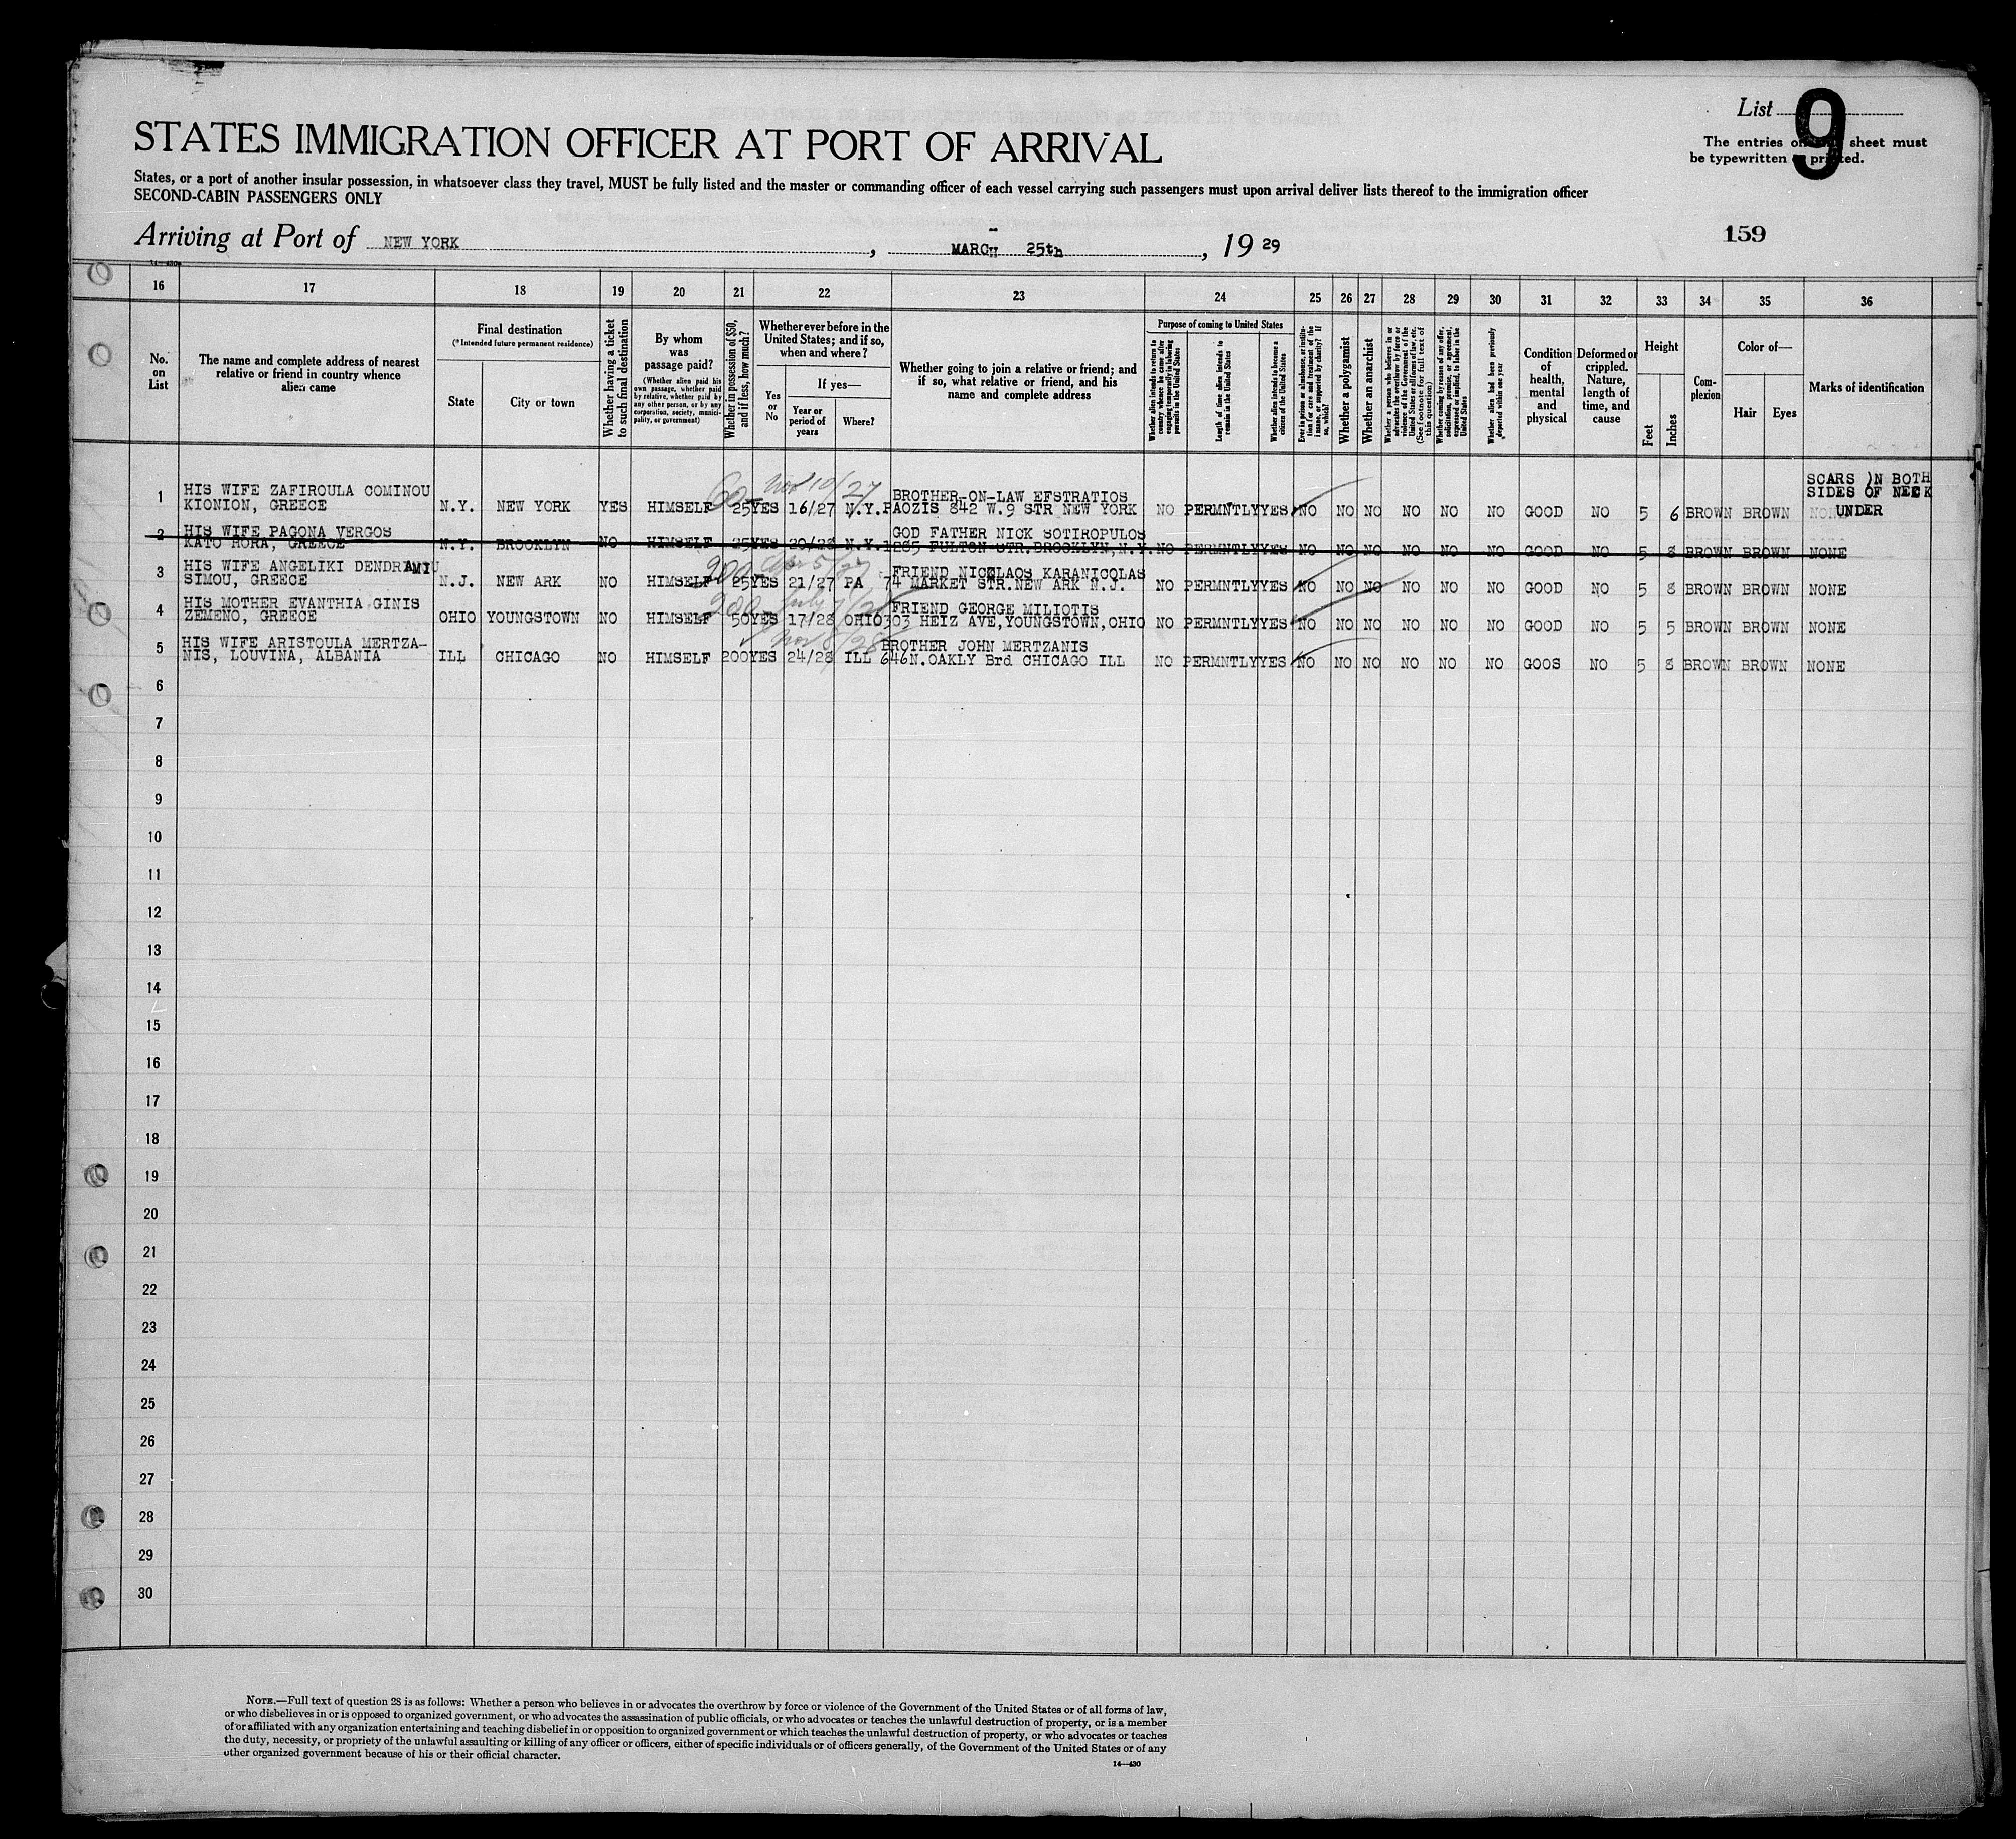 List 9
STATES IMMIGRATION OFFICER AT PORT OF ARRIVAL
The entries on sheet must
be typewritten printed.
States, or a port of another insular possession, in whatsoever class they travel, MUST be fully listed and the master or commanding officer of each vessel carrying such passengers must upon arrival deliver lists thereof to the immigration officer
SECOND-CABIN PASSENGERS ONLY
159
Arriving at Port of NEW YORK, MARCH 25th, 19 29
16 17 18 19 20 21 22 23 24 25 26 27 28 29 30 31 32 33 34 35 36
No. on List
The name and complete address of nearest relative or friend in country whence alien came
Final destination
(*Intended future permanent residence)
State
City or town
Whether having a ticket to such final destination
By whom was passage paid?
(Whether alien paid his own passage, whether paid by relative, whether paid by any other person, or by any corporation, society, municipality, or government)
Whether in possession of $50, and if less, how much?
Whether ever before in the United States; and if so, when and where?
Yes or No
If yes—
Year or period of years
Where?
Whether going to join a relative or friend; and if so, what relative or friend, and his name and complete address
Purpose of coming to United States
Whether alien intends to return to country whence he came after engaging temporarily in laboring pursuits in the United States
Length of time alien intends to remain in the United States
Whether alien intends to become a citizen of the United States
Ever in prison or almshouse, or institution for care and treatment of the insane, or supported by charity? If so, which?
Whether a polygamist
Whether an anarchist
Whether a person who believes in or advocates the overthrow by force or violence of the Government of the United States or all forms of law, etc. (See footnote for full text of this question)
Whether coming by reason of any offer, solicitation, promise, or agreement, expressed or implied, to labor in the United States
Whether alien had been previously deported within one year
Condition of health, mental and physical
Deformed or crippled. Nature, length of time, and cause
Height
Feet
Inches
Complexion
Color of—
Hair
Eyes
Marks of identification
SCARS IN BOTH
SIDES OF NECK
UNDER
60— Nov 10/27
1 HIS WIFE ZAFIROULA COMINOU
KIONION, GREECE N.Y. NEW YORK YES HIMSELF 25 YES 16/27 N.Y. BROTHER-ON-LAW EFSTRATIOS
PAOZIS 842 W.9 STR NEW YORK NO PERMNTLY YES NO NO NO NO NO NO GOOD NO 5 6 BROWN BROWN
2 HIS WIFE PAGONA VERGOS
KATO HORA, GREECE N.Y. BROOKLYN NO HIMSELF 25 YES 20/28 N.Y. GOD FATHER NICK SOTIROPULOS
1285 FULTON STR,BROOKLYN,N.Y. NO PERMNTLY YES NO NO NO NO NO NO GOOD NO 5 8 BROWN BROWN NONE
200 Apr 5/27
3 HIS WIFE ANGELIKI DENDRAMIU
SIMOU, GREECE N.J. NEW ARK NO HIMSELF 25 YES 21/27 PA FRIEND NICOLAOS KARANICOLAS
74 MARKET STR.NEW ARK N.J. NO PERMNTLY YES NO NO NO NO NO NO GOOD NO 5 8 BROWN BROWN NONE
200 July
4 HIS MOTHER EVANTHIA GINIS
ZEMENO, GREECE OHIO YOUNGSTOWN NO HIMSELF 50 YES 17/28 OHIO FRIEND GEORGE MILIOTIS
303 HEIZ AVE,YOUNGSTOWN,OHIO NO PERMNTLY YES NO NO NO NO NO NO GOOD NO 5 5 BROWN BROWN NONE
Nov 8/28
5 HIS WIFE ARISTOULA MERTZA-
NIS, LOUVINA, ALBANIA ILL CHICAGO NO HIMSELF 200 YES 24/28 ILL BROTHER JOHN MERTZANIS
646N.OAKLY Brd CHICAGO ILL NO PERMNTLY YES NO NO NO NO NO NO GOOS NO 5 8 BROWN BROWN NONE
6
7
8
9
10
11
12
13
14
15
16
17
18
19
20
21
22
23
24
25
26
27
28
29
30
NOTE.—Full text of question 28 is as follows: Whether a person who believes in or advocates the overthrow by force or violence of the Government of the United States or of all forms of law,
or who disbelieves in or is opposed to organized government, or who advocates the assassination of public officials, or who advocates or teaches the unlawful destruction of property, or is a member
of or affiliated with any organization entertaining and teaching disbelief in or opposition to organized government or which teaches the unlawful destruction of property, or who advocates or teaches
the duty, necessity, or propriety of the unlawful assaulting or killing of any officer or officers, either of specific individuals or of officers generally, of the Government of the United States or of any
other organized government because of his or their official character.
14—430